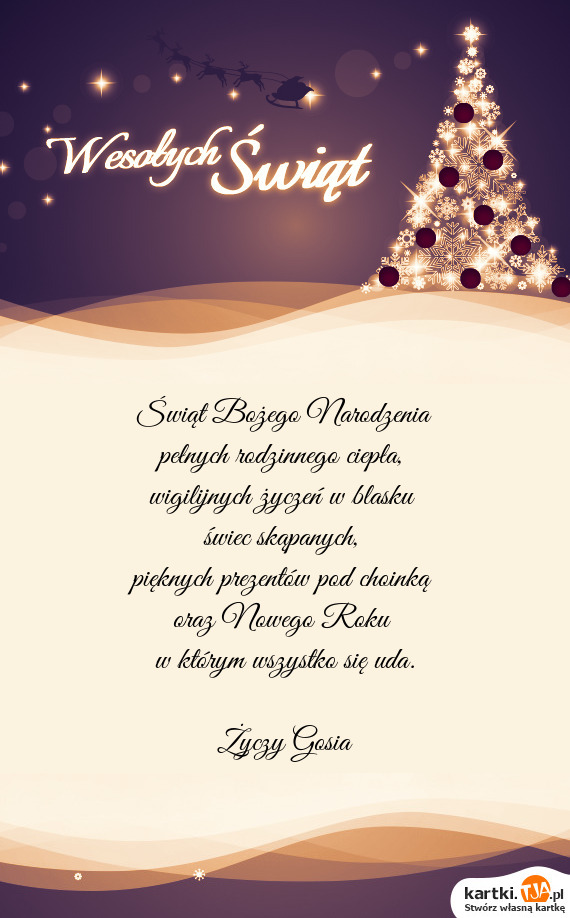 Wesołych Świąt
Świąt Bożego Narodzenia
pełnych rodzinnego ciepła,
wigilijnych życzeń w blasku
świec skąpanych,
pięknych prezentów pod choinką
oraz Nowego Roku
w którym wszystko się uda.
Życzy Gosia
kartki.TJA.pl
Stwórz własną kartkę